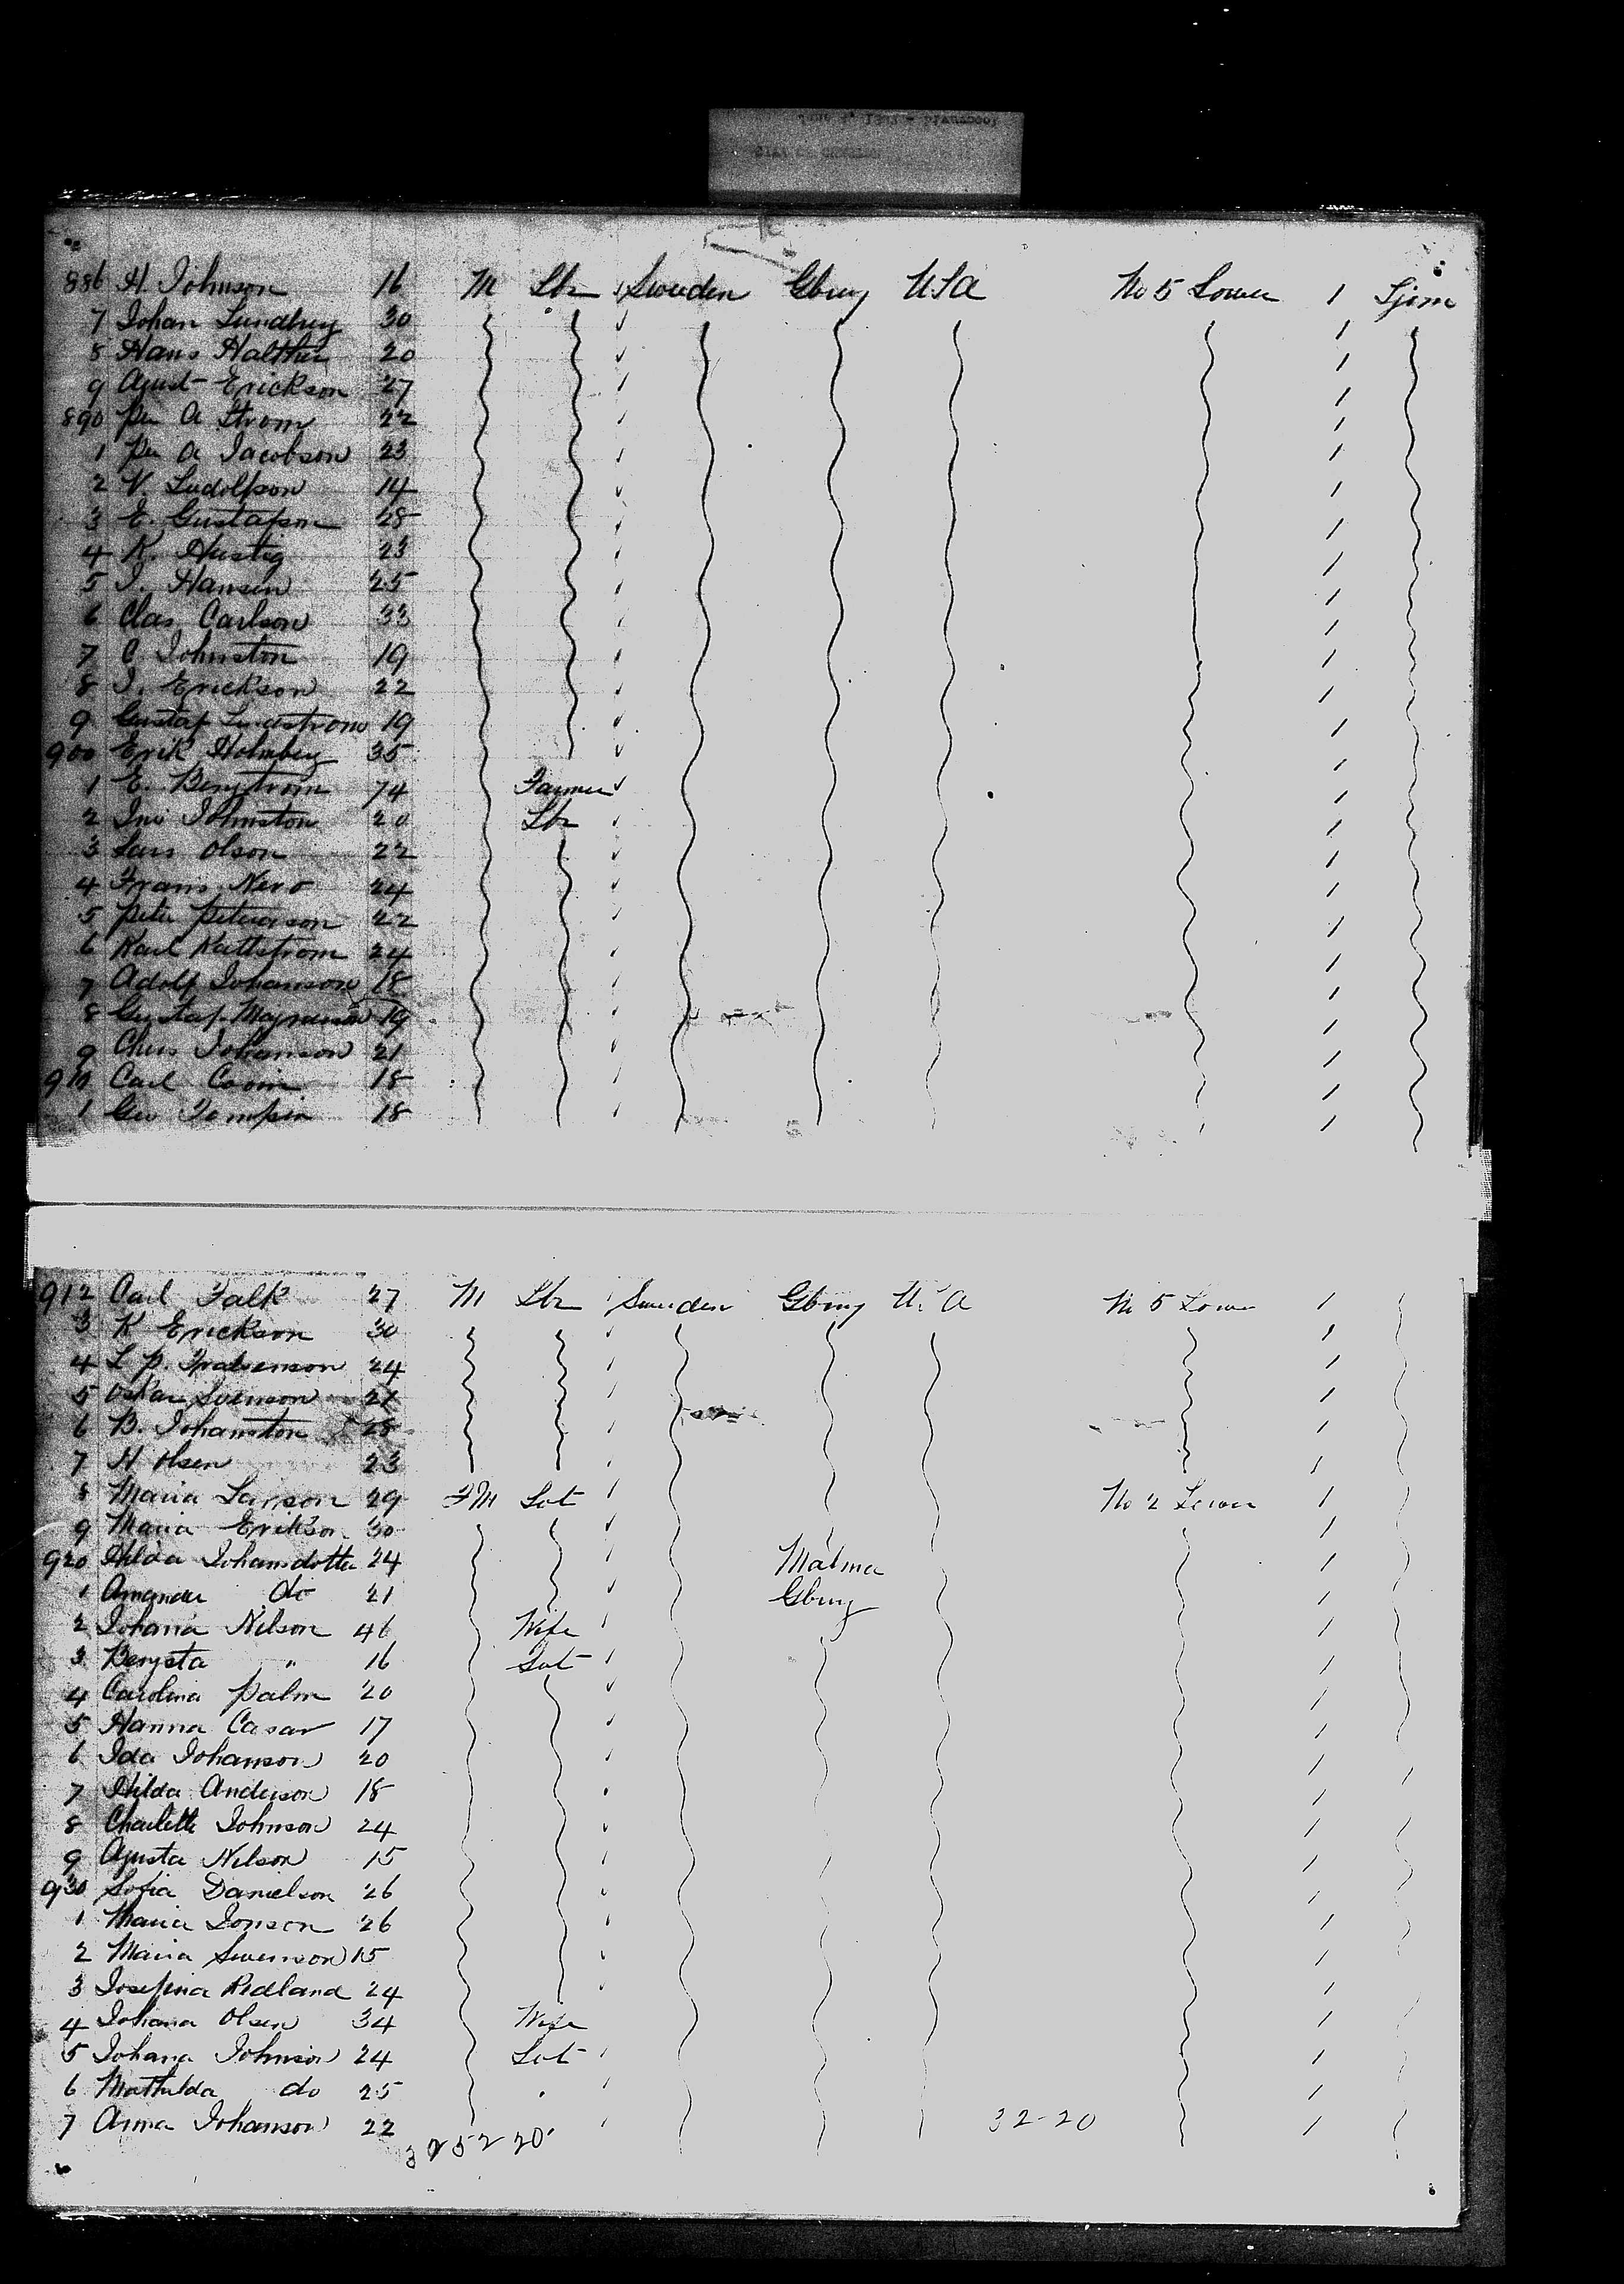 886 H. Johnson 16 M Lbr Sweeden Gburg USA No 5 Lower 1 Sjom
7 Johan Lundburg 30
8 Hans Halther 20
9 Agust Erickson 27
890 Per A Strom 22
1 Per A Jacobson 23
2 V. Ludolfson 14
3 E. Gustafson 28
4 K. Hustig 23
5 J. Hansen 25
6 Clas Carlson 33
7 C. Johnston 19
8 J. Erickson 22
9 Gustaf Lindstrom 19
900 Erik Holmberg 35
1 E. Bergstrom 74 Farmer
2 Jno Johnston 20 Lbr
3 Lars Olson 22
4 Frans Nero 24
5 Peter Peterson 22
6 Karl Kallstrom 24
7 Adolf Johanson 18
8 Gustaf 19
9 Chris Johanson 21
910 Carl 18
1 Geo 18
912 Carl Falk 27 M Lbr Sweeden Gburg U.S A No 5 Lower 1
3 K Erickson 30
4 L P. 24
5 Oskar Svenson 21
6 B. Johanston 28
7 H Olsen 23
8 Maria Larson 29 FM Svt No 2 Lower 1
9 Maria Erikson 30
920 Hilda Johansdotter 24 Malma
1 Amanda do 21 Gburg
2 Johana Nilson 46 Wife
3 Bengsta " 16 Svt
4 Carolina Palm 20
5 Hanna Casar 17
6 Ida Johanson 20
7 Hilda Anderson 18
8 Charlotte Johnson 24
9 Agusta Nilson 15
930 Sofia Danielson 26
1 Maria Jonson 26
2 Maria Swenson 15
3 Josefina Redland 24
4 Johana Olsen 34 Wife
5 Johana Johnson 24 Svt
6 Mathilda do 25
7 Anna Johanson 22 32-20